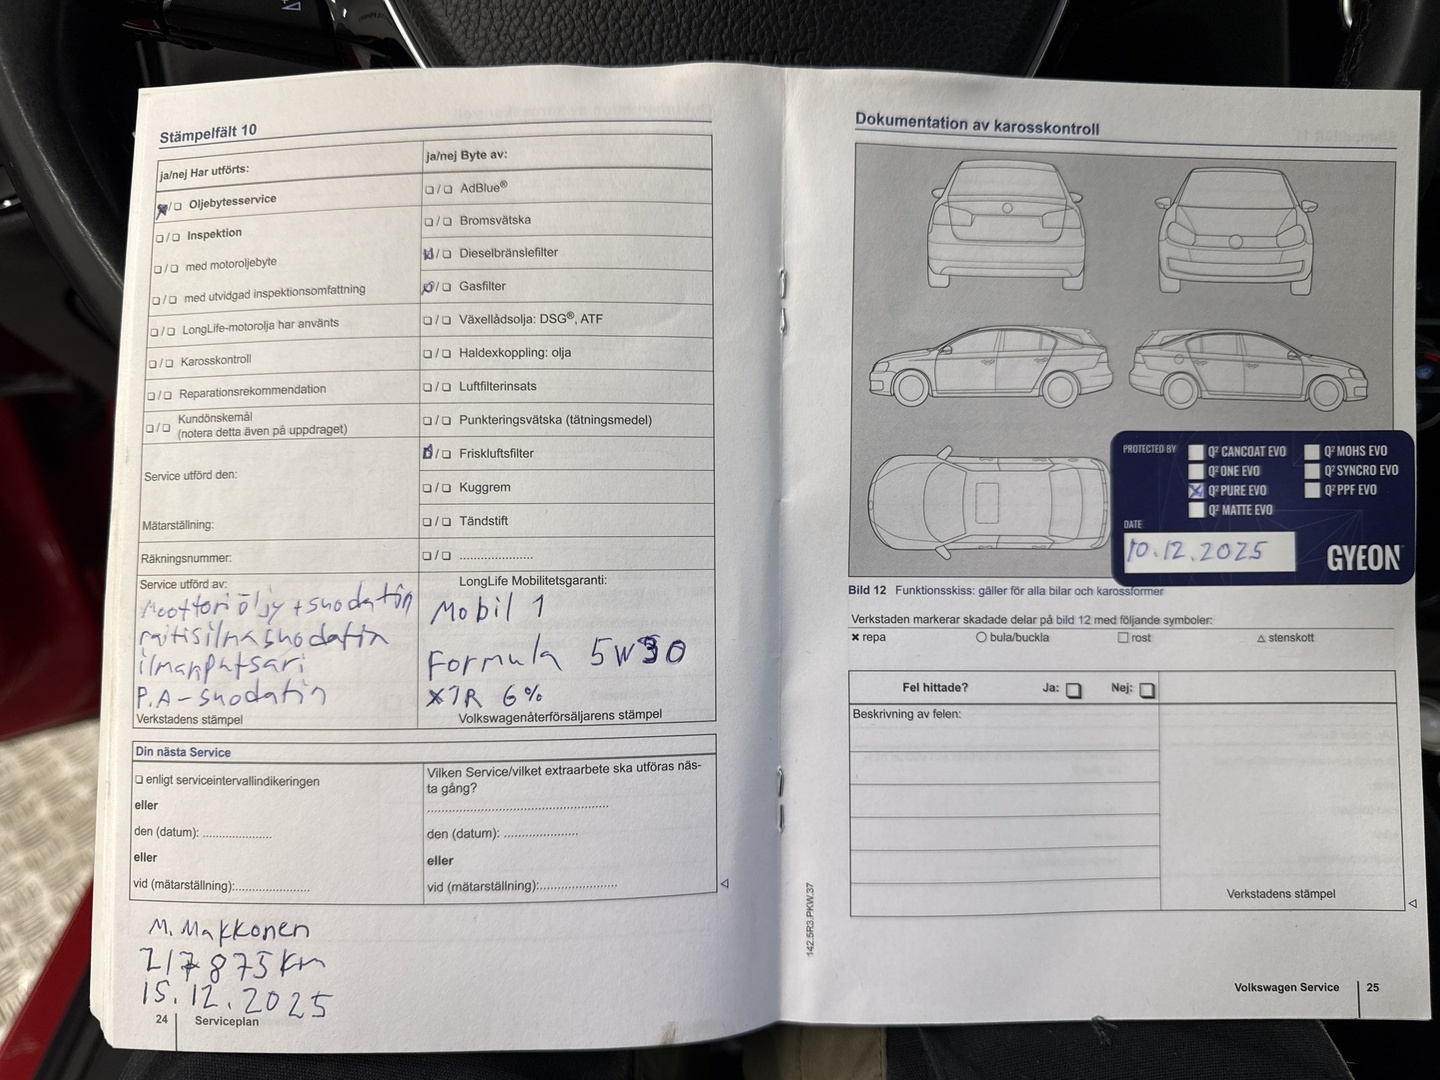 Stämpelfält 10
ja/nej Har utförts:
❏/❏ Oljebytesservice
❏/❏ Inspektion
❏/❏ med motoroljebyte
❏/❏ med utvidgad inspektionsomfattning
❏/❏ LongLife-motorolja har använts
❏/❏ Karosskontroll
❏/❏ Reparationsrekommendation
❏/❏ Kundönskemål
(notera detta även på uppdraget)
Service utförd den:
Mätarställning:
Räkningsnummer:
Service utförd av:
Moottoriöljy + suodatin
raitisilmasuodatin
ilmanputsari
P.A-suodatin
Verkstadens stämpel
ja/nej Byte av:
❏/❏ AdBlue®
❏/❏ Bromsvätska
❏/❏ Dieselbränslefilter
❏/❏ Gasfilter
❏/❏ Växellådsolja: DSG®, ATF
❏/❏ Haldexkoppling: olja
❏/❏ Luftfilterinsats
❏/❏ Punkteringsvätska (tätningsmedel)
❏/❏ Friskluftsfilter
❏/❏ Kuggrem
❏/❏ Tändstift
❏/❏ .....................
LongLife Mobilitetsgaranti:
Mobil 1
Formula 5W30
X1R 6%
Volkswagenåterförsäljarens stämpel
Din nästa Service
❏ enligt serviceintervallindikeringen
eller
den (datum): ....................
eller
vid (mätarställning):.....................
Vilken Service/vilket extraarbete ska utföras näs-
ta gång?
.....................................................
den (datum): .....................
eller
vid (mätarställning):......................
M. Makkonen
217875 km
15.12.2025
24 Serviceplan
Dokumentation av karosskontroll
PROTECTED BY
Q² CANCOAT EVO
Q² ONE EVO
Q² PURE EVO
Q² MATTE EVO
Q² MOHS EVO
Q² SYNCRO EVO
Q² PPF EVO
DATE
10.12.2025
GYEON
Bild 12 Funktionsskiss: gäller för alla bilar och karossformer
Verkstaden markerar skadade delar på bild 12 med följande symboler:
✖ repa ○ bula/buckla □ rost △ stenskott
Fel hittade? Ja: ❏ Nej: ❏
Beskrivning av felen:
Verkstadens stämpel
142.5R3.PKW.37
Volkswagen Service 25